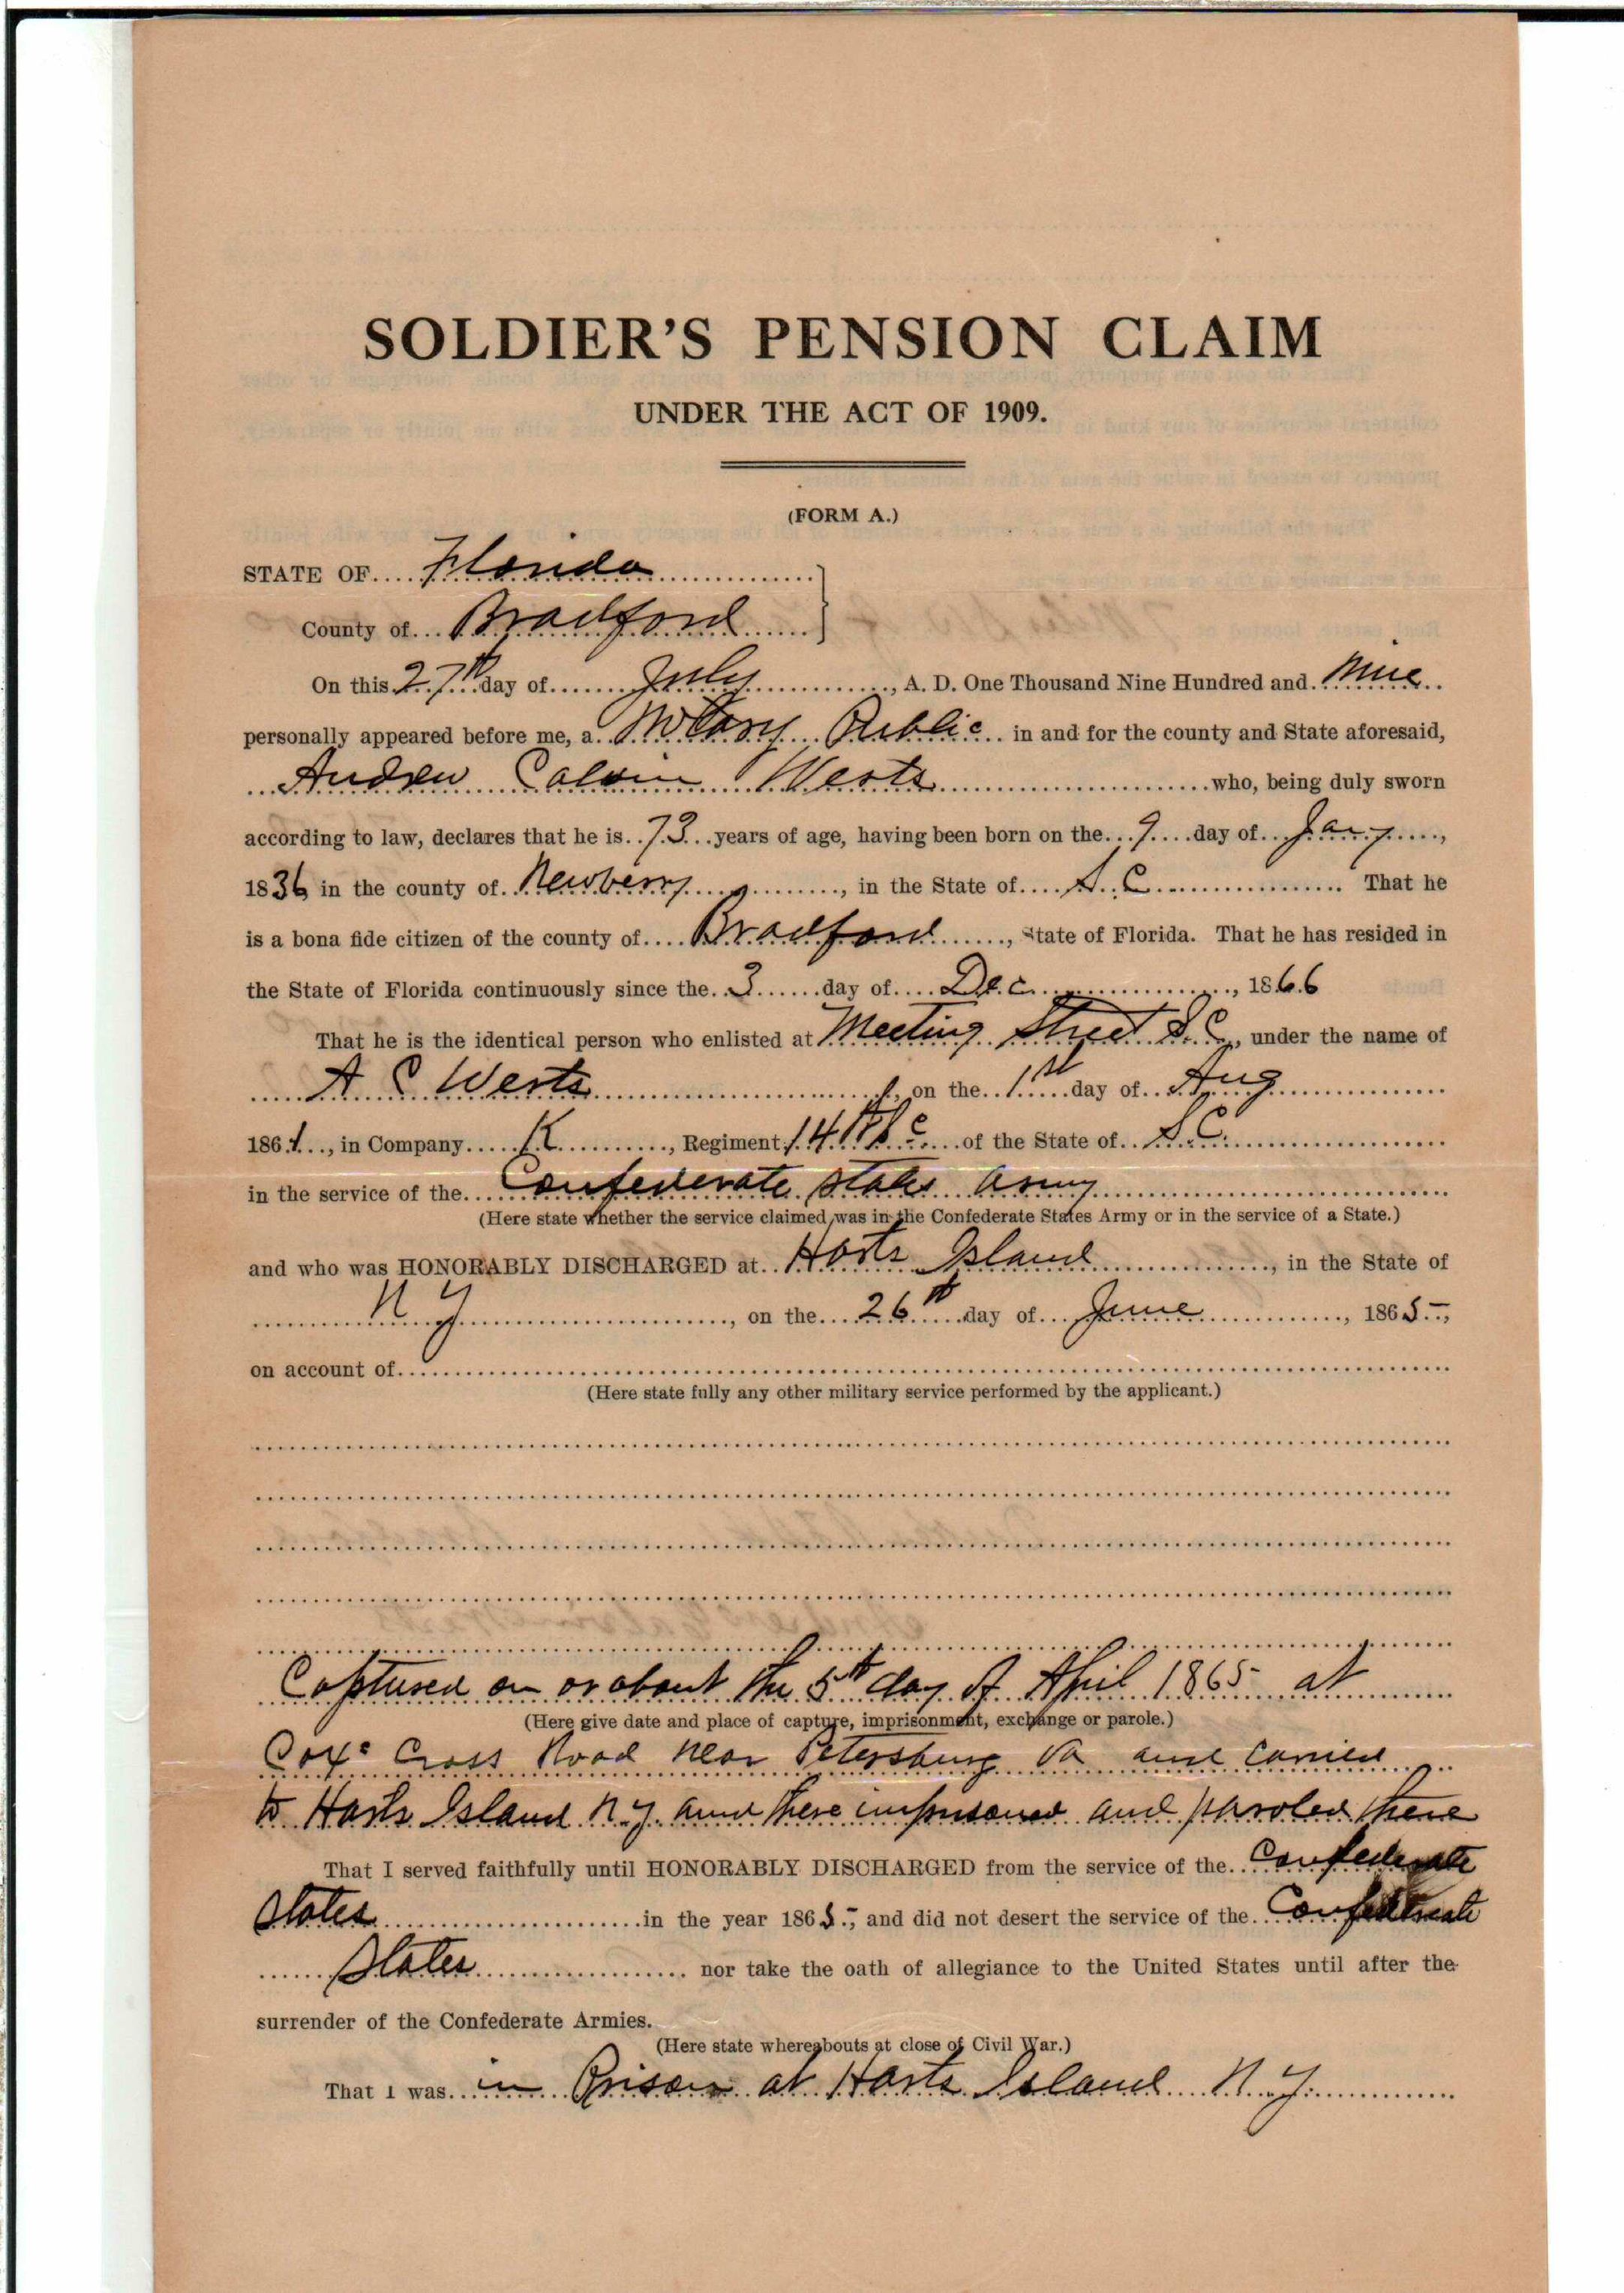 SOLDIER'S PENSION CLAIM
UNDER THE ACT OF 1909.
(FORM A.)
STATE OF Florida
County of Bradford
On this 27th day of July, A. D. One Thousand Nine Hundred and Nine
personally appeared before me, a Notary Public in and for the county and State aforesaid,
Andrew Calvin Werts who, being duly sworn
according to law, declares that he is 73 years of age, having been born on the 9 day of Jany,
1836 in the county of Newberry, in the State of S. C. That he
is a bona fide citizen of the county of Bradford, State of Florida. That he has resided in
the State of Florida continuously since the 3 day of Dec, 1866
That he is the identical person who enlisted at Meeting Street S. C., under the name of
A C Werts, on the 1st day of Aug
1861, in Company K, Regiment 14th of the State of S.C.
in the service of the Confederate States Army
(Here state whether the service claimed was in the Confederate States Army or in the service of a State.)
and who was HONORABLY DISCHARGED at Harts Island, in the State of
N Y, on the 26th day of June, 1865,
on account of
(Here state fully any other military service performed by the applicant.)
Captured on or about the 5th day of April 1865 at
(Here give date and place of capture, imprisonment, exchange or parole.)
Coxs Cross Road near Petersburg Va and carried
to Harts Island N.Y. and there imprisoned and paroled there
That I served faithfully until HONORABLY DISCHARGED from the service of the Confederate
States in the year 1865, and did not desert the service of the Confederate
States nor take the oath of allegiance to the United States until after the
surrender of the Confederate Armies.
(Here state whereabouts at close of Civil War.)
That I was in Prison at Harts Island N.Y.